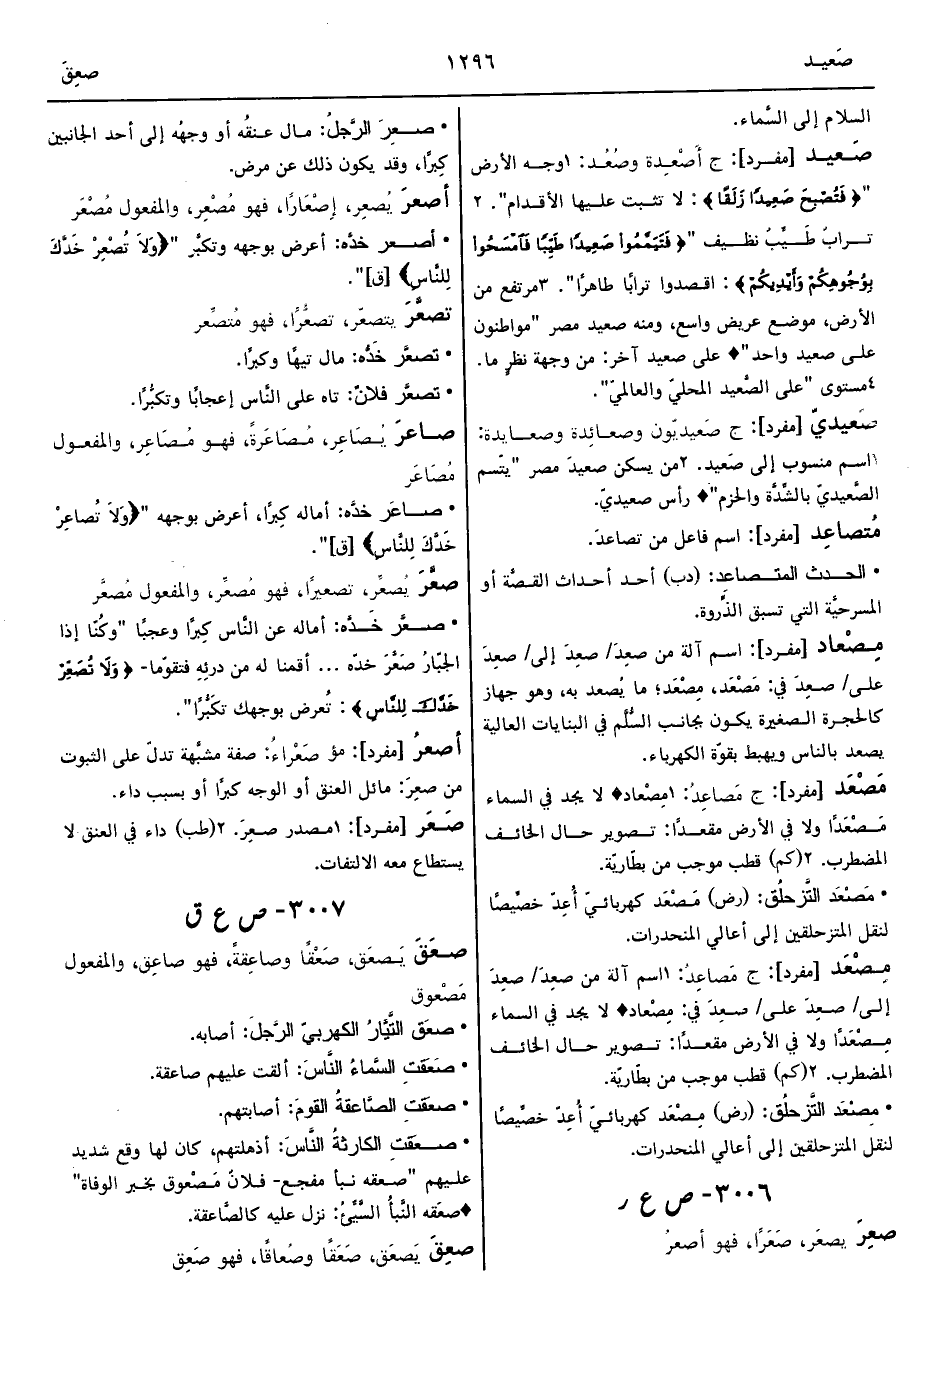 صَعيـد
١٢٩٦
صعِقَ
السلام إلى السَّماء.
صَعيـد [مفـرد]: ج أَصْعِدة وصُعُد: ١وجـه الأرض
"﴿ فَتُصْبِحَ صَعِيدًا زَلَقًا ﴾ : لا تثبت عليها الأقدام". ٢
تـرابٌ طَيِّبٌ نظـيف "﴿ فَتَيَمَّمُوا صَعِيدًا طَيِّبًا فَٱمْسَحُوا
بِوُجُوهِكُمْ وَأَيْدِيكُمْ ﴾ : اقـصدوا ترابًا طاهرًا". ٣مرتفع من
الأرض، موضـع عريض واسع، ومنه صعيد مصر "مواطنون
علـى صعيد واحد"♦ على صعيد آخر: من وجهة نظرٍ ما.
٤مستوى "على الصَّعيد المحليّ والعالميّ".
صَعيديّ [مفرد]: ج صَعيديّون وصعـائدة وصعـايدة:
١اسـم منسوب إلى صَعيد. ٢من يسكن صعيدَ مصر "يتّسم
الصَّعيديّ بالشِّدَّة والحزم"♦ رأس صعيديّ.
مُتصاعِد [مفرد]: اسم فاعل من تصاعدَ.
• الحـدث المتـصاعد: (دب) أحد أحداث القصَّة أو
المسرحيَّة التي تسبق الذَّروة.
مِـصْعاد [مفـرد]: اسـم آلة من صعِدَ/ صعِدَ إلى/ صعِدَ
علـى/ صـعِدَ في: مَصْعَد، مِصْعَد؛ ما يُصعد به، وهو جهاز
كالحجرة الصغيرة يكون بجانب السُّلَّم في البنايات العالية
يصعد بالناس ويهبط بقوّة الكهرباء.
مَصْعَد [مفرد]: ج مَصاعِدُ: ١مِصْعاد♦ لا يجد في السماء
مَـصْعَدًا ولا في الأرض مقعـدًا: تـصوير حـال الخائـف
المضطرب. ٢(كم) قطب موجب من بطّاريّة.
• مَصْعَد التَّزحلُق: (رض) مَـصْعَد كهربائيّ أُعِدّ خصِّيصًا
لنقل المتزحلقين إلى أعالي المنحدرات.
مِـصْعَد [مفرد]: ج مَصاعِدُ: ١اسم آلة من صعِدَ/ صعِدَ
إلى/ صعِدَ على/ صعِدَ في: مِصْعاد♦ لا يجد في السماء
مِـصْعَدًا ولا في الأرض مقعـدًا: تـصوير حـال الخائـف
المضطرب. ٢(كم) قطب موجب من بطّاريّة.
• مِصْعَد التَّزحلُق: (رض) مِـصْعَد كهربائيّ أُعِدّ خصِّيصًا
لنقل المتزحلقين إلى أعالي المنحدرات.
٣٠٠٦- ص ع ر
صعِرَ يصعَر، صَعَرًا، فهو أصعرُ
• صـعِرَ الرَّجلُ: مـال عنقُه أو وجهُه إلى أحد الجانبين
كِبرًا، وقد يكون ذلك عن مرض.
أصعرَ يُصعِر، إصْعَارًا، فهو مُصْعِر، والمفعول مُصْعَر
• أصـعـر خدَّه: أعرض بوجهه وتكبَّر "﴿وَلاَ تُصْعِرْ خَدَّكَ
لِلنَّاسِ﴾ [ق]".
تصعَّرَ يتصعّر، تصعُّرًا، فهو مُتصعِّر
• تصعَّر خَدُّه: مال تيهًا وكبرًا.
• تصعَّر فلانٌ: تاه على النَّاس إعجابًا وتكبُّرًا.
صـاعرَ يُـصاعِر، مُـصَاعَرةً، فهـو مُـصَاعِر، والمفعـول
مُصَاعَر
• صـاعَر خدَّه: أماله كِبرًا، أعرض بوجهه "﴿وَلاَ تُصاعِرْ
خَدَّكَ لِلنَّاسِ﴾ [ق]".
صعَّرَ يُصعِّر، تصعيرًا، فهو مُصعِّر، والمفعول مُصعَّر
• صـعَّر خَـدَّه: أماله عن النَّاس كِبرًا وعجبًا "وكُنّا إذا
الجبّارُ صَعَّرَ خدّه ... أقمنا له من درئِهِ فتقوّما- ﴿ وَلَا تُصَعِّرْ
خَدَّكَ لِلنَّاسِ ﴾ : تُعرض بوجهك تكبُّرًا".
أصعرُ [مفرد]: مؤ صَعْراءُ: صفة مشبَّهة تدلّ على الثبوت
من صعِرَ: مائل العنق أو الوجه كبرًا أو بسبب داء.
صَـعَـر [مفـرد]: ١مـصدر صعِرَ. ٢(طب) داء في العنق لا
يستطاع معه الالتفات.
٣٠٠٧- ص ع ق
صـعَقَ يَـصعَق، صَعْقًا وصاعِقةً، فهو صاعِق، والمفعول
مَصْعوق
• صعَق التَّيَّارُ الكهربيّ الرَّجلَ: أصابه.
• صَعَقتِ السَّماءُ النَّاسَ: ألقت عليهم صاعقة.
• صعقتِ الصَّاعقةُ القومَ: أصابتهم.
• صـعقتِ الكارثةُ النَّاسَ: أذهلتهم، كان لها وقع شديد
علـيهم "صـعقه نـبأ مفجـع- فـلانٌ مَـصْعوق بخبر الوفاة"
♦صعَقه النَّبأُ السَّيِّئُ: نزل عليه كالصَّاعقة.
صعِقَ يَصعَق، صَعَقًا وصُعاقًا، فهو صَعِق